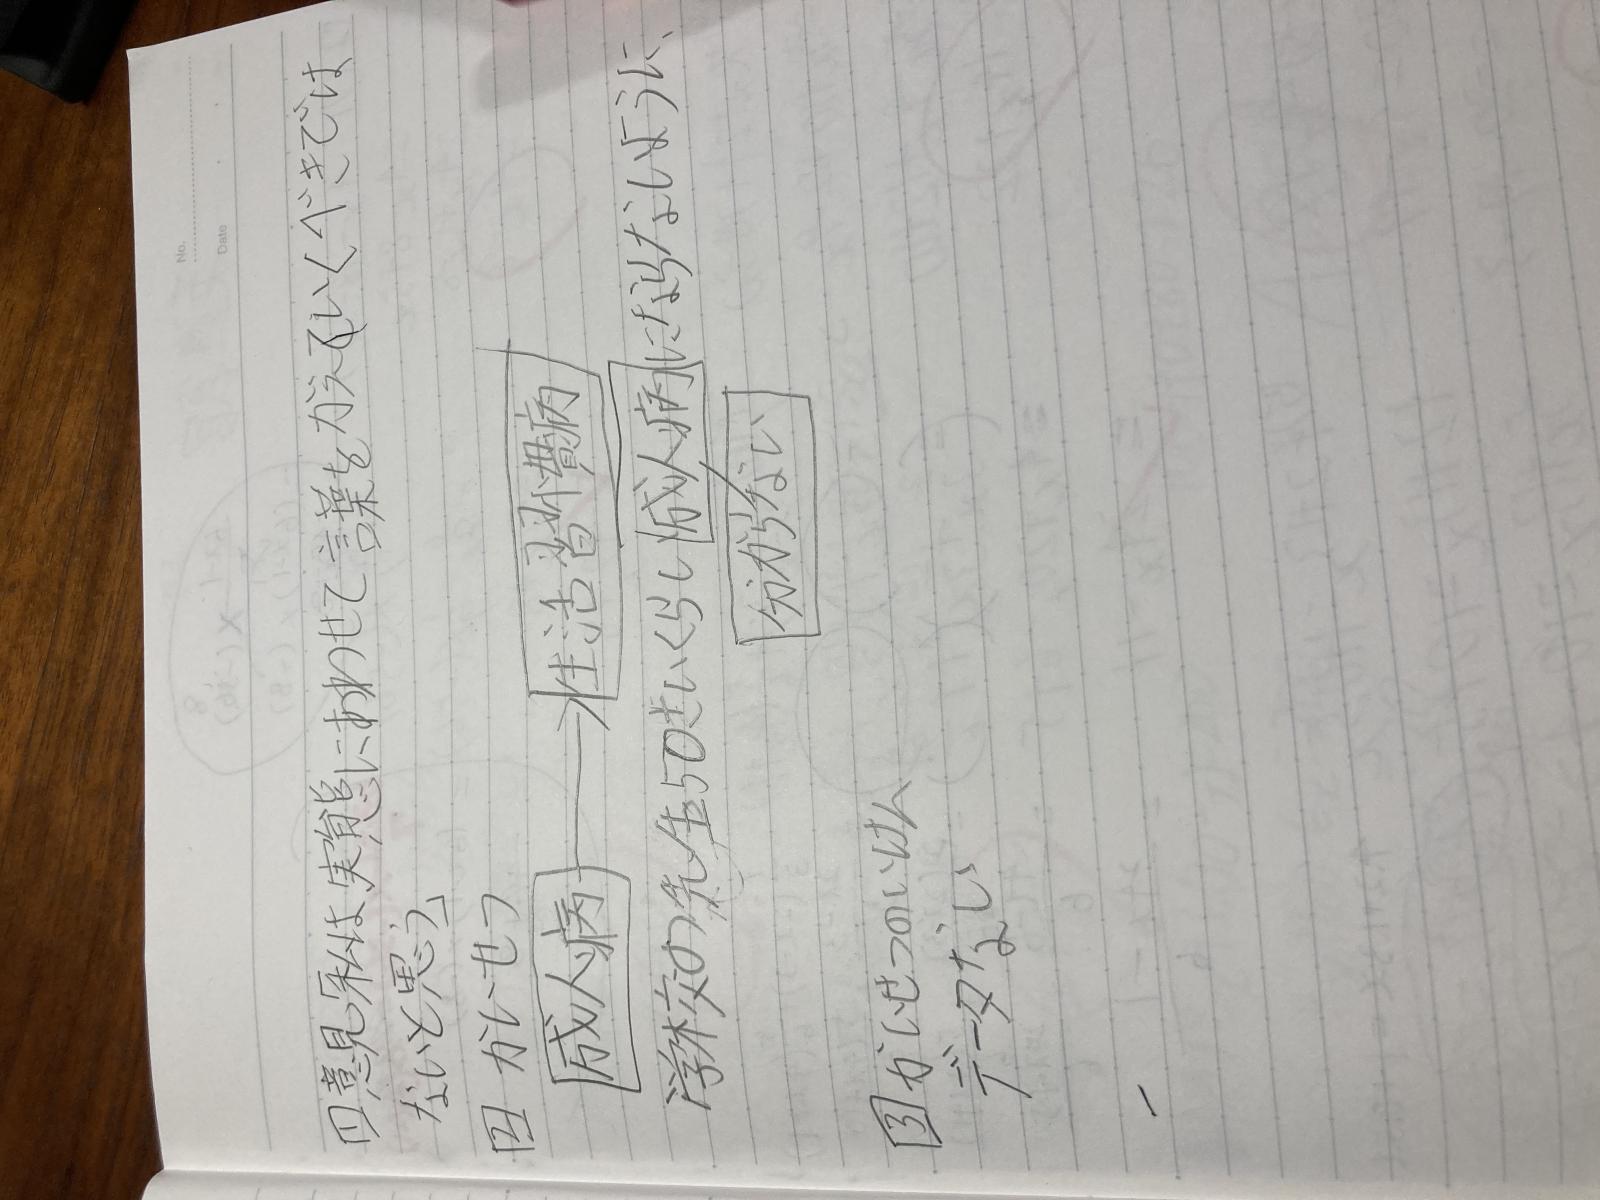 No.
Date
1 意見「私は実態にあわせて言葉をかえていくべきでは
ないと思う」
2 かいせつ
成人病 → 生活習慣病
学校の先生50さいくらい成人病にならないように、
分からない
3 かいせつのいけん
データない